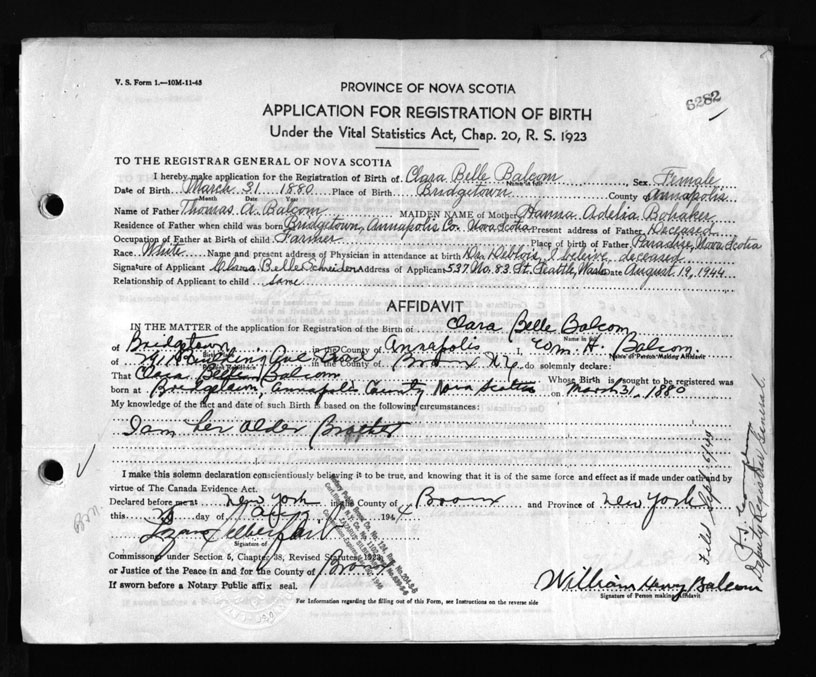 V. S. Form 1.—10M-11-43
6282
PROVINCE OF NOVA SCOTIA
APPLICATION FOR REGISTRATION OF BIRTH
Under the Vital Statistics Act, Chap. 20, R. S. 1923
TO THE REGISTRAR GENERAL OF NOVA SCOTIA
I hereby make application for the Registration of Birth of Clara Belle Balcom Sex Female
Name in full
Date of Birth March 31 1880 Place of Birth Bridgetown County of Annapolis
Month Date Year
Name of Father Thomas A. Balcom MAIDEN NAME of Mother Hanna Adelia Bohaker
Residence of Father when child was born Bridgetown, Annapolis Co. Nova Scotia Present address of Father Deceased
Occupation of Father at Birth of child Farmer Place of birth of Father Paradise, Nova Scotia
Race White Name and present address of Physician in attendance at birth Dr. I beleive deceased
Signature of Applicant Clara Belle Address of Applicant 537 No. 83 St. Seattle, Wash Date August 19, 1944
Relationship of Applicant to child same
AFFIDAVIT
IN THE MATTER of the application for Registration of the Birth of Clara Belle Balcom
Name in full
of Bridgetown in the County of Annapolis I, Wm. H. Balcom
Name of Person Making Affidavit
of in the County of Bronx N.Y. do solemnly declare:
That Clara Belle Balcom Whose Birth is sought to be registered was
born at Bridgetown, Annapolis County, Nova Scotia on March 31, 1880
My knowledge of the fact and date of such Birth is based on the following circumstances:
I am her older Brother
I make this solemn declaration conscientiously believing it to be true, and knowing that it is of the same force and effect as if made under oath and by
virtue of The Canada Evidence Act.
Declared before me at New York in the County of Bronx and Province of New York
this day of Aug 1944
Signature of
Commissoner under Section 5, Chapter 38, Revised Statutes 1923
or Justice of the Peace in and for the County of Bronx
If sworn before a Notary Public affix seal.
William Henry Balcom
Signature of Person making Affidavit
For Information regarding the filling out of this Form, see Instructions on the reverse side
Filed Sept
Deputy Registrar General.